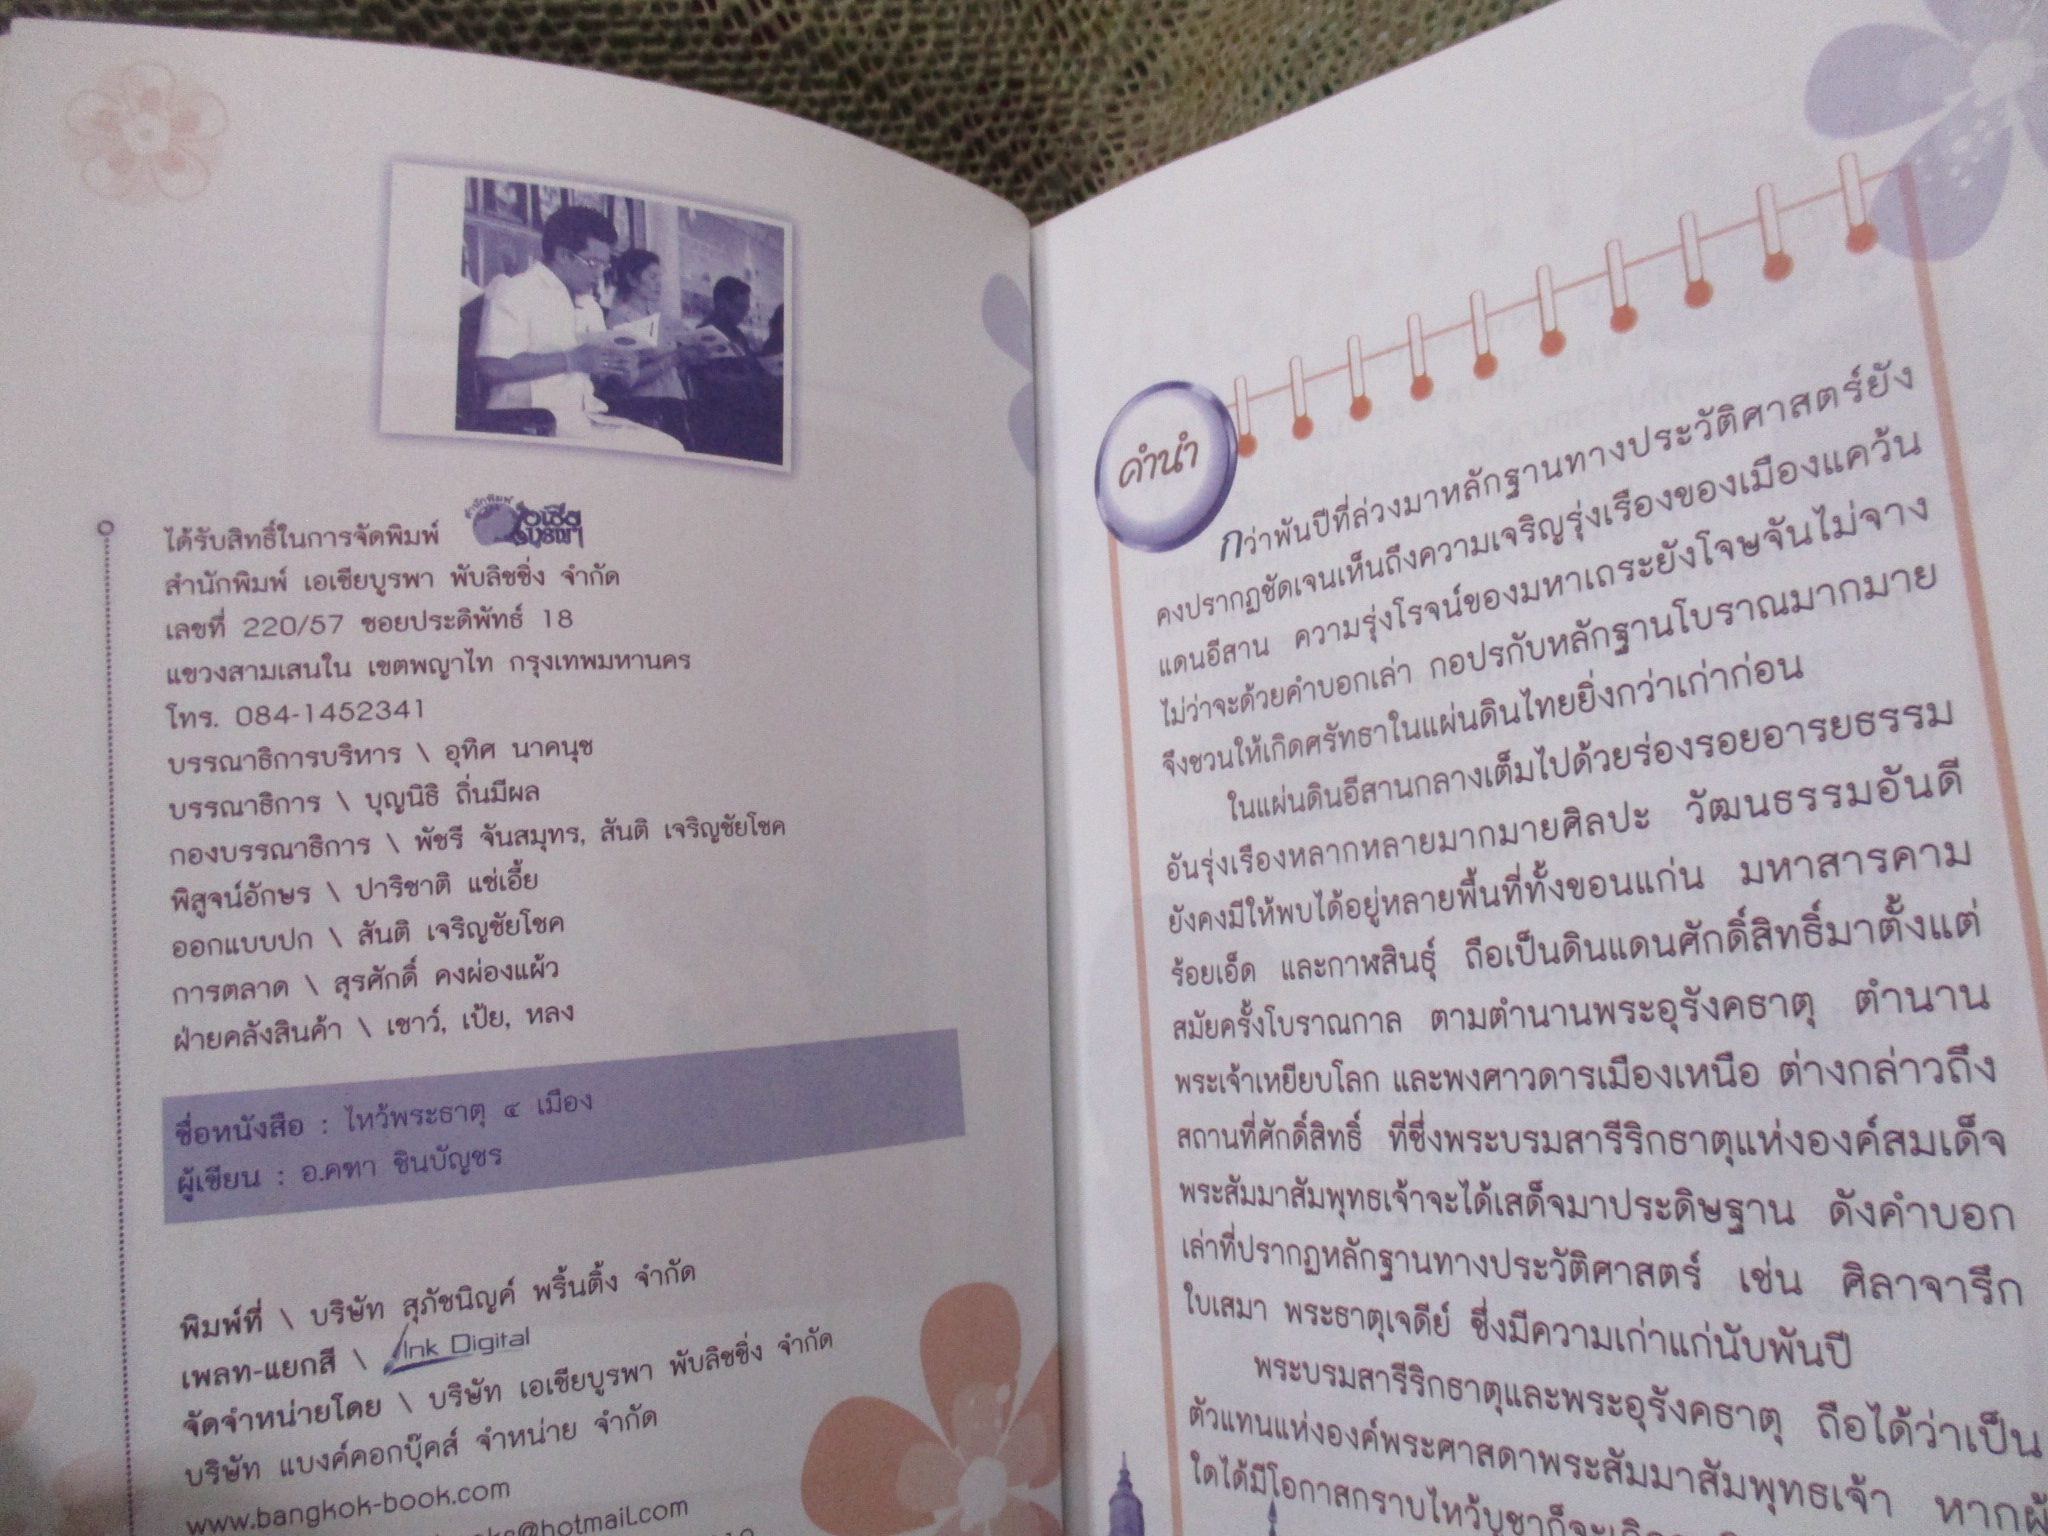 ได้รับสิทธิ์ในการจัดพิมพ์ สำนักพิมพ์ เอเชียบูรพา
สำนักพิมพ์ เอเชียบูรพา พับลิชชิ่ง จำกัด
เลขที่ 220/57 ซอยประดิพัทธ์ 18
แขวงสามเสนใน เขตพญาไท กรุงเทพมหานคร
โทร. 084-1452341
บรรณาธิการบริหาร \ อุทิศ นาคนุช
บรรณาธิการ \ บุญนิธิ ถิ่นมีผล
กองบรรณาธิการ \ พัชรี จันสมุทร, สันติ เจริญชัยโชค
พิสูจน์อักษร \ ปาริชาติ แซ่เอี้ย
ออกแบบปก \ สันติ เจริญชัยโชค
การตลาด \ สุรศักดิ์ คงผ่องแผ้ว
ฝ่ายคลังสินค้า \ เชาว์, เป้ย, หลง
ชื่อหนังสือ : ไหว้พระธาตุ ๔ เมือง
ผู้เขียน : อ.คฑา ชินบัญชร
พิมพ์ที่ \ บริษัท สุภัชนิญค์ พริ้นติ้ง จำกัด
เพลท-แยกสี \ Ink Digital
จัดจำหน่ายโดย \ บริษัท เอเชียบูรพา พับลิชชิ่ง จำกัด
บริษัท แบงค์คอกบุ๊คส์ จำหน่าย จำกัด
www.bangkok-book.com
@hotmail.com
คำนำ
กว่าพันปีที่ล่วงมาหลักฐานทางประวัติศาสตร์ยัง
คงปรากฏชัดเจนเห็นถึงความเจริญรุ่งเรืองของเมืองแคว้น
แดนอีสาน ความรุ่งโรจน์ของมหาเถระยังโจษจันไม่จาง
ไม่ว่าจะด้วยคำบอกเล่า กอปรกับหลักฐานโบราณมากมาย
จึงชวนให้เกิดศรัทธาในแผ่นดินไทยยิ่งกว่าเก่าก่อน
ในแผ่นดินอีสานกลางเต็มไปด้วยร่องรอยอารยธรรม
อันรุ่งเรืองหลากหลายมากมายศิลปะ วัฒนธรรมอันดี
ยังคงมีให้พบได้อยู่หลายพื้นที่ทั้งขอนแก่น มหาสารคาม
ร้อยเอ็ด และกาฬสินธุ์ ถือเป็นดินแดนศักดิ์สิทธิ์มาตั้งแต่
สมัยครั้งโบราณกาล ตามตำนานพระอุรังคธาตุ ตำนาน
พระเจ้าเหยียบโลก และพงศาวดารเมืองเหนือ ต่างกล่าวถึง
สถานที่ศักดิ์สิทธิ์ ที่ซึ่งพระบรมสารีริกธาตุแห่งองค์สมเด็จ
พระสัมมาสัมพุทธเจ้าจะได้เสด็จมาประดิษฐาน ดังคำบอก
เล่าที่ปรากฏหลักฐานทางประวัติศาสตร์ เช่น ศิลาจารึก
ใบเสมา พระธาตุเจดีย์ ซึ่งมีความเก่าแก่นับพันปี
พระบรมสารีริกธาตุและพระอุรังคธาตุ ถือได้ว่าเป็น
ตัวแทนแห่งองค์พระศาสดาพระสัมมาสัมพุทธเจ้า หากผู้
ใดได้มีโอกาสกราบไหว้บูชาก็จะเกิด